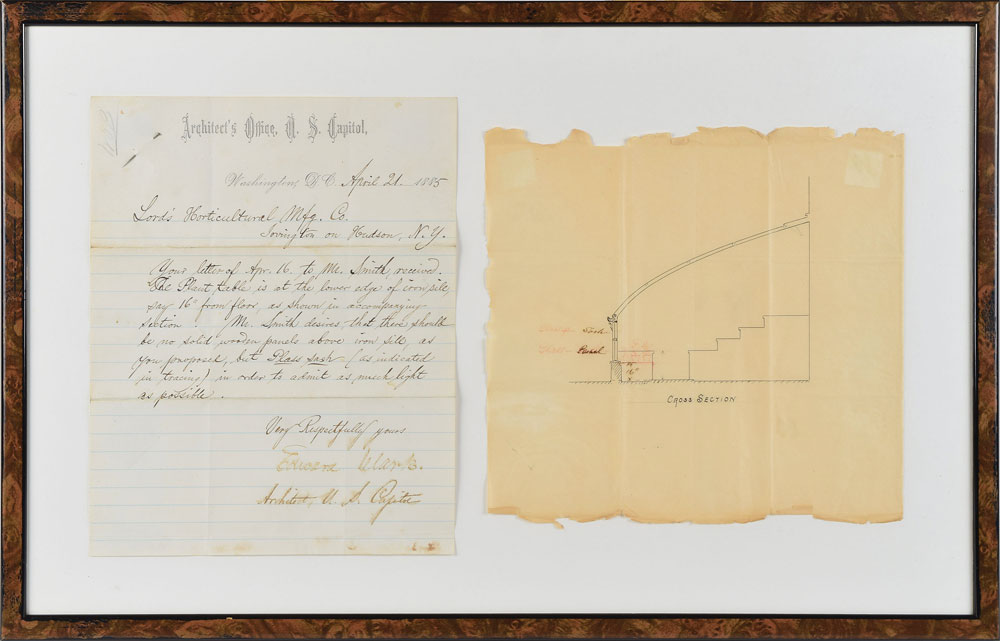 Architect's Office, U. S. Capitol,
Washington, D.C. April 21 1885
Lord's Horticultural Mfg. Co.
Irvington on Hudson, N.Y.
Your letter of Apr. 16, to Mr. Smith, received.
The Plant table is at the lower edge of iron sill,
say 16" from floor, as shown in accompanying
section. Mr. Smith desires, that there should
be no solid wooden panels above iron sill, as
you proposed, but Glass sash (as indicated
in tracing) in order to admit as much light
as possible.
Very Respectfully yours
Edward Clark.
Architect, U. S. Capitol
Sash
Panel
16"
CROSS SECTION